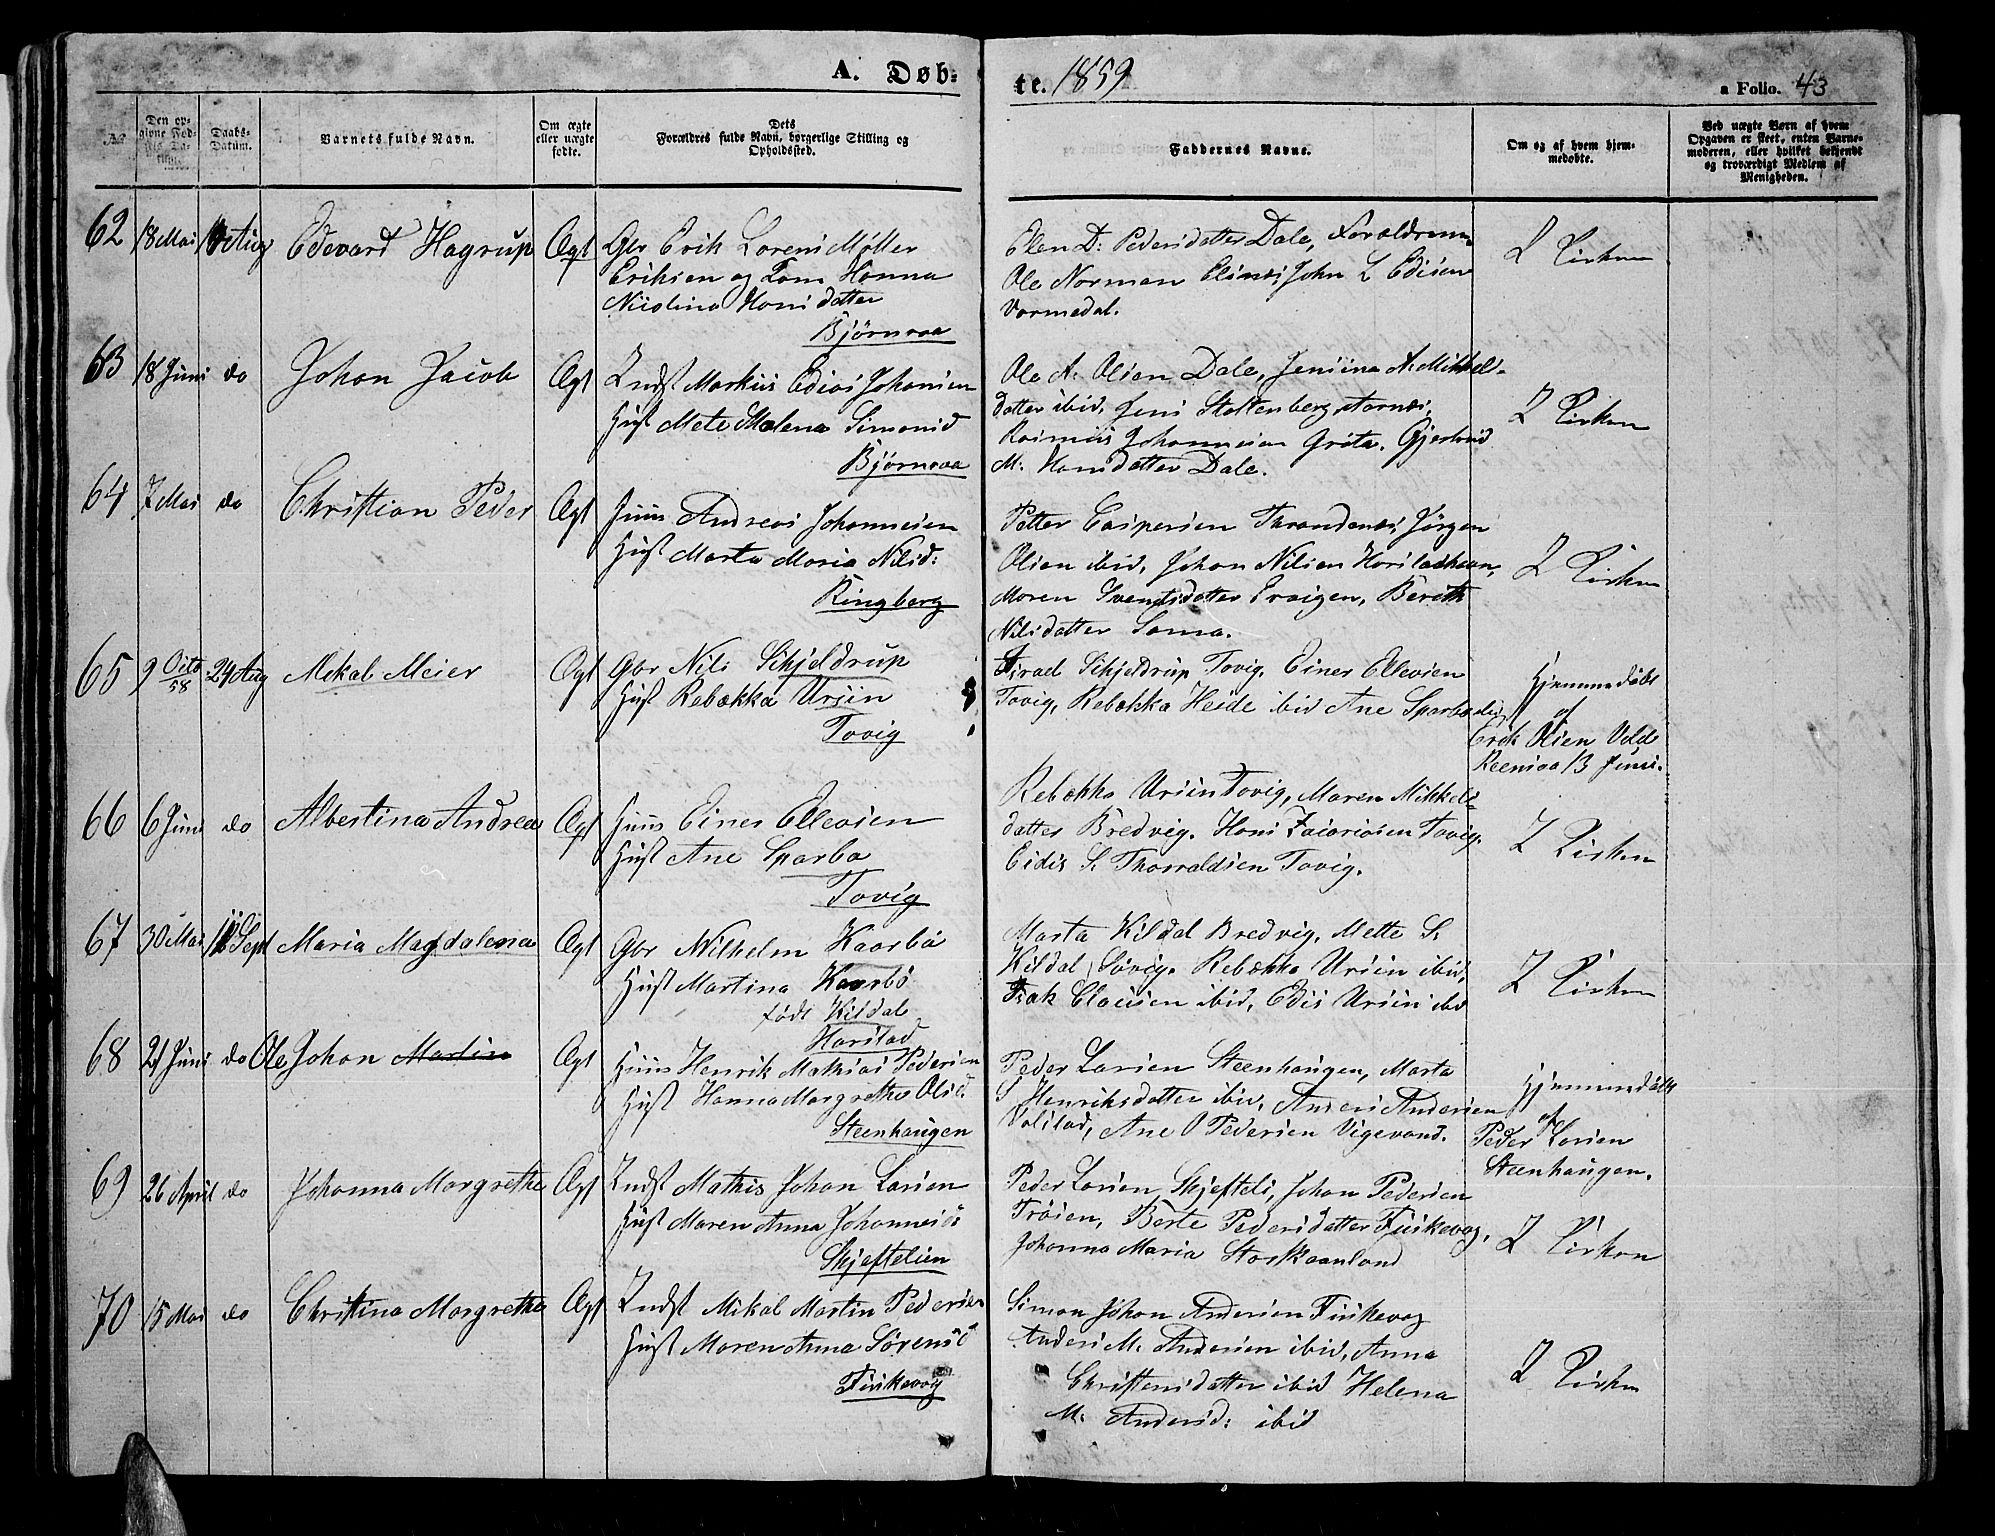 A. Døb-
te. 1859
a Folio. 43
Den op-
givne Fød-
sels Da-
tum.
Daabs-
Datum.
Varnets fulde Navn.
Om ægte
eller uægte
fødte.
Dets
Forældres fulde Navn, borgerlige Stilling og
Opholdssted.
Faddernes Navne.
Om og af hvem hjem-
medøbte.
Ved uægte Børn af hvem
Opgaven er skeet, enten Barne-
moderen, eller hvilket bekjendt
og troværdigt Medlem af
Menigheden.
62 18 Mai Aug Edevard Hagrup Ægt Gbr Erik Lorens Møller
Eriksen og Kone Hanna
Nicolina Hansdatter
Bjørnraa
Elen D: Pedersdatter Dale, Forældrene
Ole Norman Elsnæs, John L Edisen
Vormedal.
I Kirken
63 18 Juni do Johan Jacob Ægt Indst Markus Edias Johansen
Hust Mete Malena Simonsd
Bjørnraa
Ole A: Olsen Dale, Jensina A: Mikkels-
datter ibid, Jens Stoltenberg
Rasmus Johannesen Grøta. Gjertrud
M: Hansdatter Dale.
I Kirken
64 7 Mai do Christian Peder Ægt Huus Andreas Johannesen
Hust Marta Maria Nilsd:
Ringberg
Petter Caspersen Throndenæs, Jørgen
Olsen ibid, Johan Nilsen Harstadhavn,
Maren Svendsdatter Ervigen, Bereth
Nilsdatter Sama.
I Kirken
65 9 Octo/58 24 Aug Mekal Meier Ægt Gbr Nils Schjeldrup
Hust Rebækka Ursin
Tovig
Israel Schjeldrup Tovig, Einer Ellevsen
Tovig, Rebækka Heide ibid Ane Sparbo
Hjemmedøbt
af
Erik Olsen Volde
Reensaa 13 Juni.
66 6 Juni do Albertina Andrea Ægt Huus Einer Ellevsen
Hust Ane Sparbo
Tovig
Rebækka Ursin Tovig, Maren Mikkels-
datter Bredvig. Hans Zacariasen Tovig.
Eidis S. Thorvaldsen Tovig.
I Kirken
67 30 Mai 11 Sept Maria Magdalena Ægt Gbr Wilhelm Kaarbø
Hust Martina Kaarbø
født Kildal
Harstad
Marta Kildal Bredvig. Mette S.
Kildal, Søvig. Rebækka Ursin ibid,
Isak Clausen ibid, Edis Ursin ibd
I Kirken
68 21 Juni do Ole Johan Martin Ægt Huus Henrik Mathias Pedersen
Hust Hanna Margrethe Olsd.
Steenhaugen
Peder Larsen Steenhaugen, Marta
S Henriksdatter ibid, Anders Andersen
Volstad, Ane O Pedersen Vigevand.
Hjemmedøbt
af
Peder Larsen
Steenhaugen.
69 26 April do Johanna Margrethe Ægt Indst Mathis Johan Larsen
Hust Maren Anna Johannesd:
Skjeftelien
Peder Larsen Skjefteli, Johan Pedersen
Trøsen, Berte Pedersdatter Fuskevog,
Johanna Maria Storkaanland
I Kirken
70 15 Mai do Christina Margrethe Ægt Indst Mikal Martin Pedersen
Hust Maren Anna Sørensd
Fuskevog
Simon Johan Andersen Fuskevog
Anders M. Andersen ibid, Anna
Christensdatter ibid Helena
M: Andersd: ibid
I Kirken